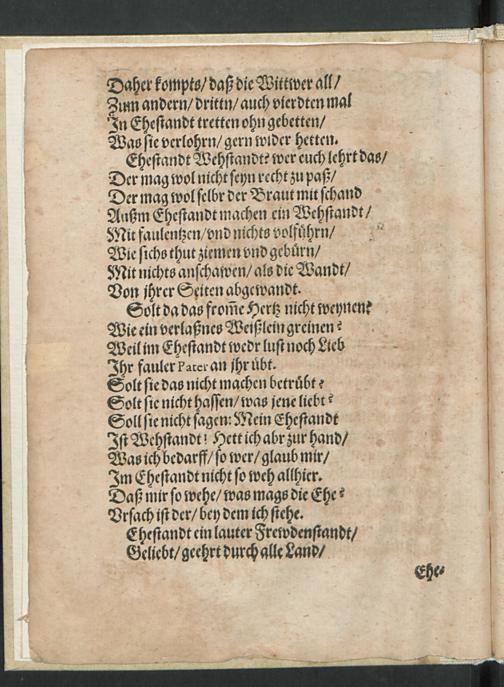 Daher kompts/ daß die Wittwer all/
Zum andern/ drittn/ auch vierdten mal
In Ehestandt tretten ohn gebetten/
Was sie verlohrn/ gern wider hetten.
Ehestandt Wehstandt? wer euch lehrt das/
Der mag wol nicht seyn recht zu paß/
Der mag wol selbr der Braut mit schand
Außm Ehestandt machen ein Wehstandt/
Mit faulentzen/ vnd nichts volführn/
Wie sichs thut ziemen vnd gebürn/
Mit nichts anschawen/ als die Wandt/
Von jhrer Seiten abgewandt.
Solt da das from̄e Hertz nicht weynen?
Wie ein verlaßnes Weißlein greinen?
Weil im Ehestandt wedr lust noch Lieb
Ihr fauler Pater an jhr übt.
Solt sie das nicht machen betrübt?
Solt sie nicht hassen/ was jene liebt?
Soll sie nicht sagen: Mein Ehestandt
Ist Wehstandt! Hett ich abr zur hand/
Was ich bedarff/ so wer/ glaub mir/
Im Ehestandt nicht so weh allhier.
Daß mir so wehe/ was mags die Ehe?
Vrsach ist der/ bey dem ich stehe.
Ehestandt ein lauter Frewdenstandt/
Geliebt/ geehrt durch alle Land/
Ehe-